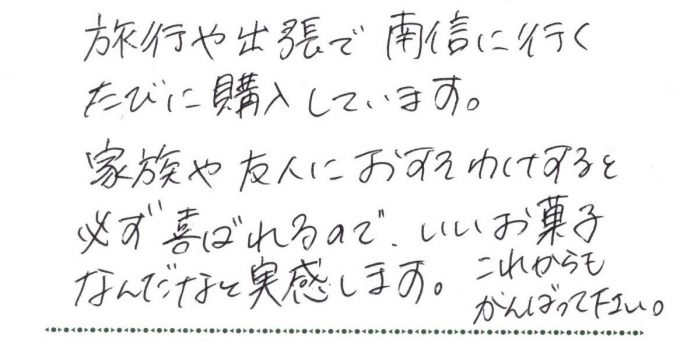 旅行や出張で南信に行く
たびに購入しています。
家族や友人におすそわけすると
必ず喜ばれるので、いいお菓子
なんだなと実感します。
これからも
がんばって下さい。